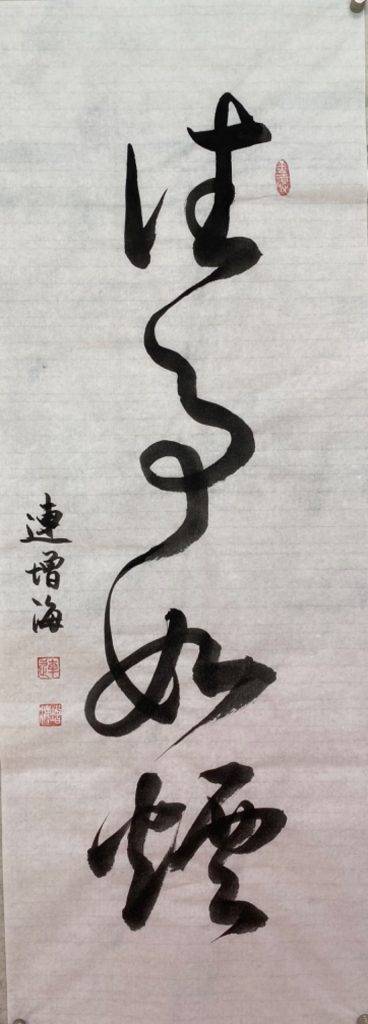 往事如煙
連增海